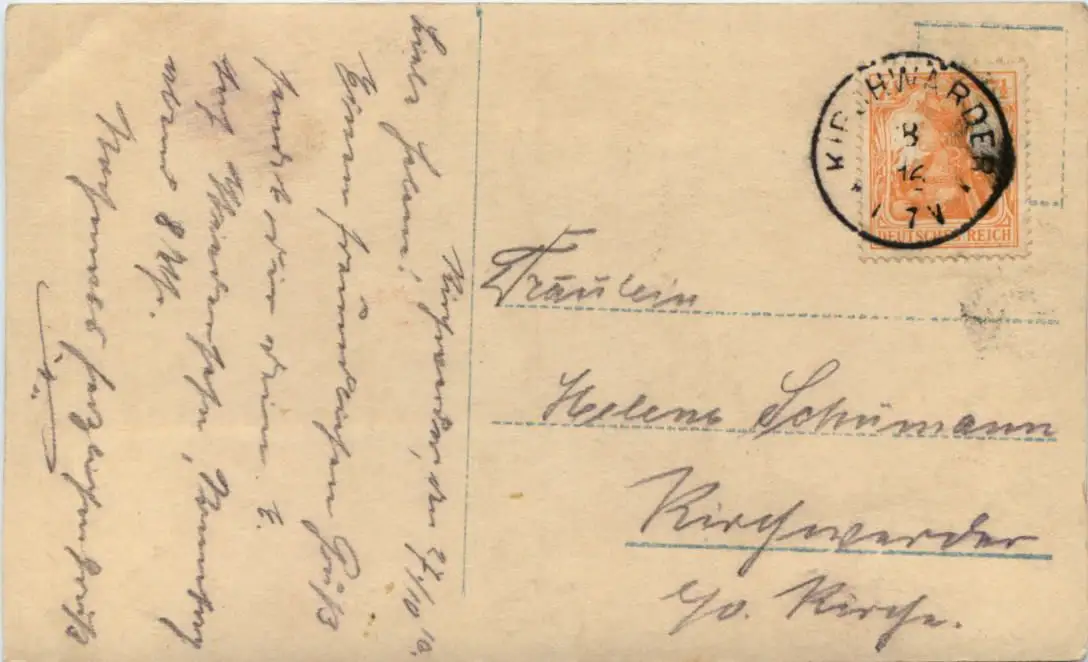 Kirchwerder, den 27/10 16.
Liebe Helene!
Einen freundlichen Gruß
sendet dir dein E.
Auf Wiedersehn, Sonntag
Abend 8 Uhr.
Nochmals herzlichen Gruß
D.
KIRCHWÄRDER
8
16
7 V
DEUTSCHES REICH
Fräulein
Helene Schümann
Kirchwerder
a/d. Kirche.